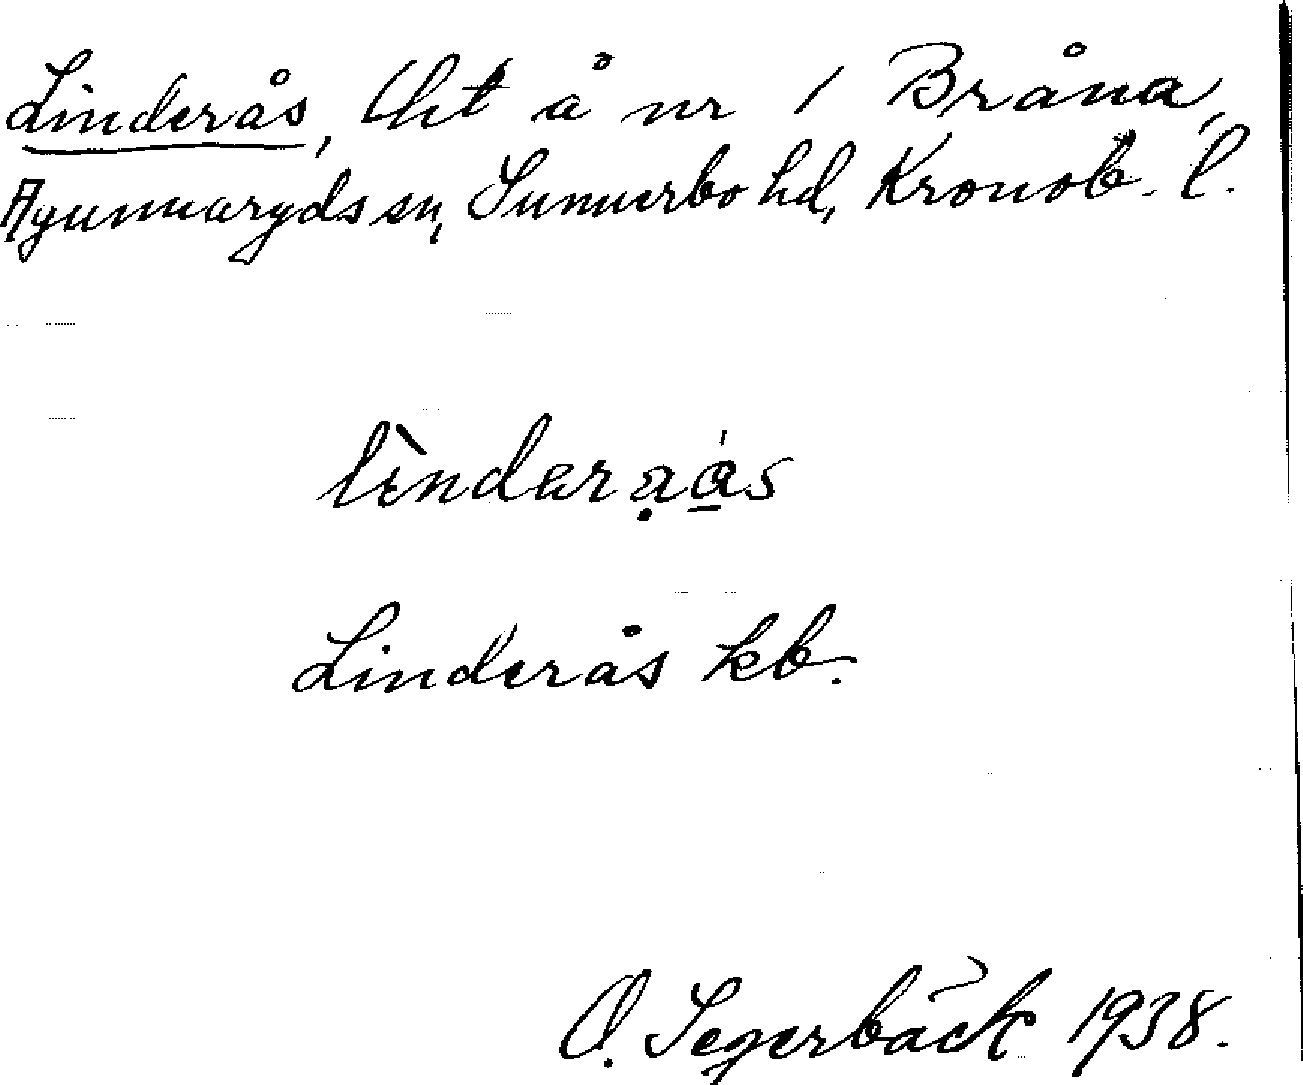 Linderås, lht å nr 1 Bråna,
Agunnaryds sn, Sunnerbo hd, Kronob. l.
Linderås kb.
O. Segerbäck 1938.